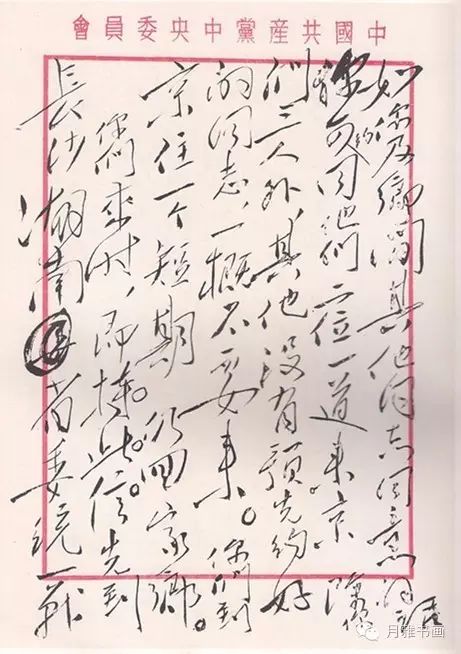 中國共産黨中央委員會
如你及鄉間其他同志同意的話
你可約同他們二位一道來京。除你
们三人外,其他沒有預先约好
的同志,一概不要來。你們到
京住一个短期,仍回家鄉。
你們來时,即持此信先到
長沙湖南省委統一戰
月雅书画